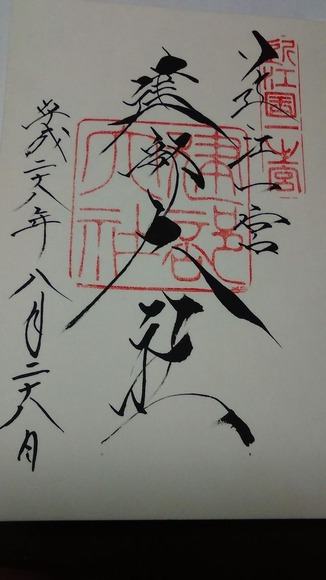 近江国一之宮
近江一宮
建部大社
建部大社
平成二十八年八月二十八日